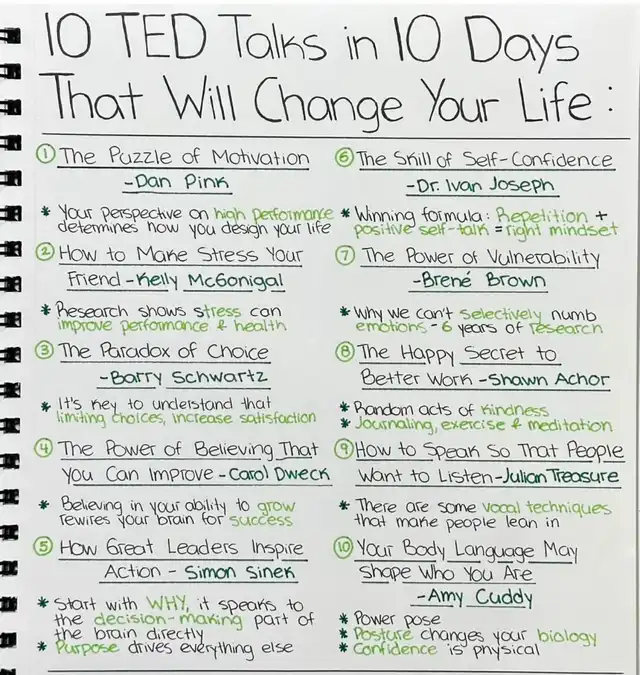 10 TED Talks in 10 Days
That Will Change Your Life :
① The Puzzle of Motivation
-Dan Pink
* Your perspective on high performance
determines how you design your life
② How to Make Stress Your
Friend-Kelly McGonigal
* Research shows stress can
improve performance & health
③ The Paradox of Choice
-Barry Schwartz
* It's key to understand that
limiting choices, increase satisfaction
④ The Power of Believing That
you Can Improve-Carol Dweck
* Believing in your ability to grow
rewires your brain for success
⑤ How Great Leaders Inspire
Action - Simon Sinek
* Start with WHY, it speaks to
the decision-making part of
the brain directly
* Purpose drives everything else
⑥ The Skill of Self-Confidence
-Dr. Ivan Joseph
* Winning formula: Repetition +
positive self-talk = right mindset
⑦ The Power of Vulnerability
-Brené Brown
* Why we can't selectively numb
emotions - 6 years of research
⑧ The Happy Secret to
Better Work-Shawn Achor
* Random acts of kindness
* Journaling, exercise & meditation
⑨ How to Speak So That People
Want to Listen-Julian Treasure
* There are some vocal techniques
that make people lean in
⑩ Your Body Language May
Shape Who You Are
-Amy Cuddy
* Power pose
* Posture changes your biology
* Confidence is physical